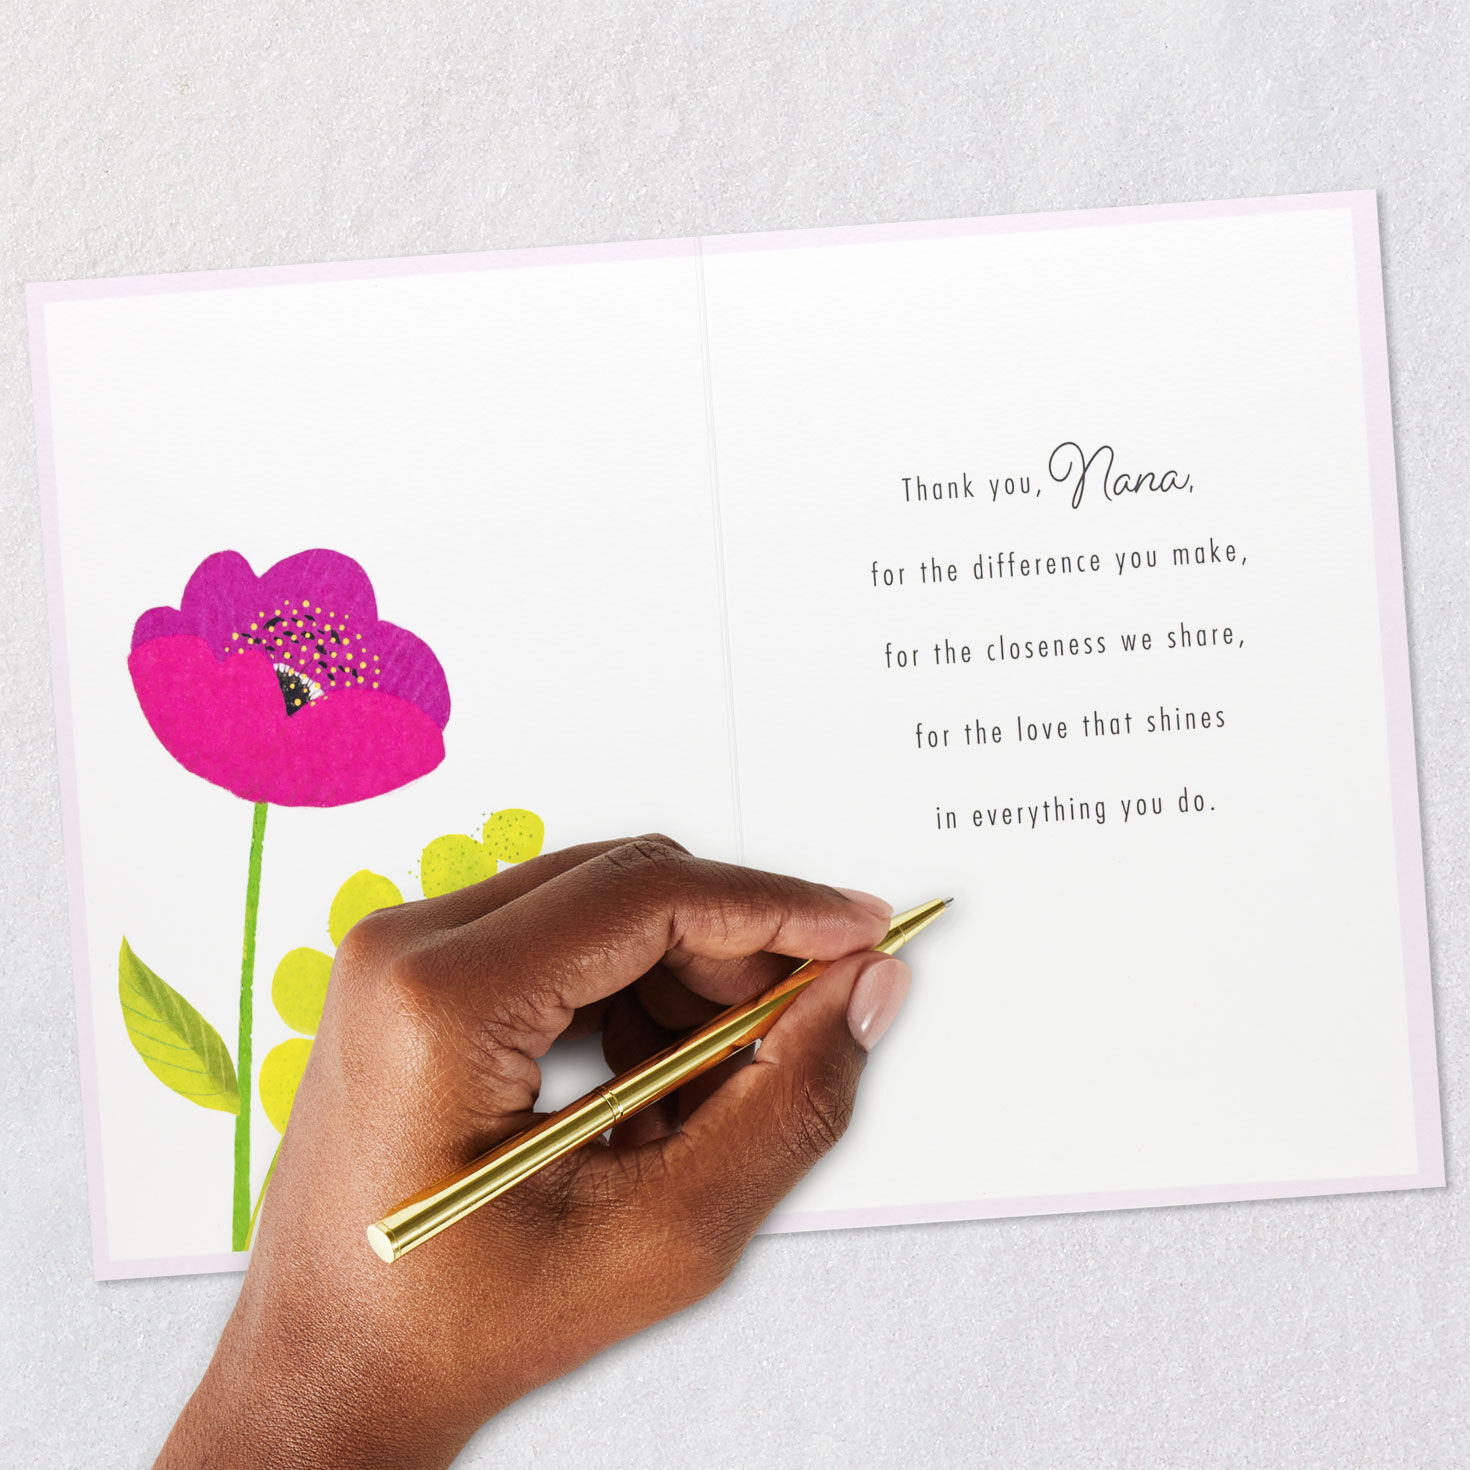 Thank you, Nana,
for the difference you make,
for the closeness we share,
for the love that shines
in everything you do.